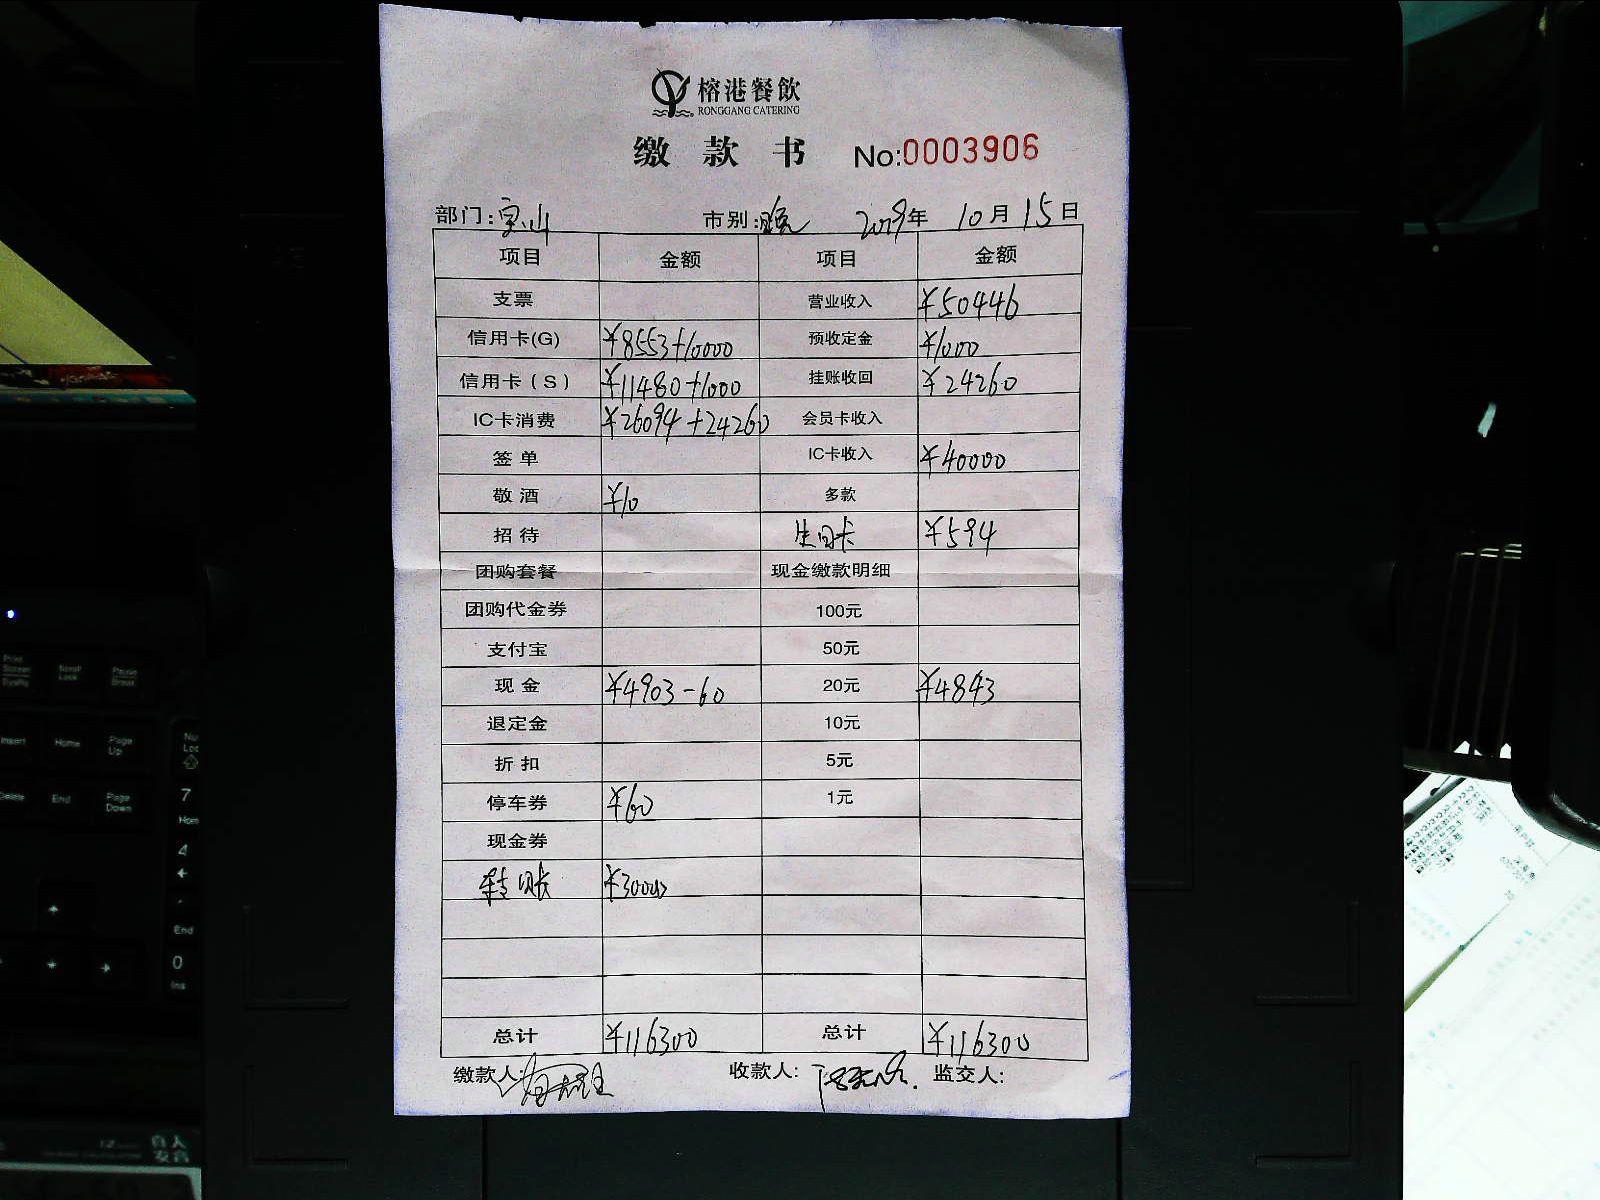 榕港餐飲
RONGGANG CATERING
缴款书 No:0003906
部门:宝山 市别:晚 2019年10月15日
项目 金额 项目 金额
支票 营业收入 ¥50446
信用卡(G) ¥8553+10000 预收定金 ¥1000
信用卡(S) ¥11480+1000 挂账收回 ¥24260
IC卡消费 ¥26094+24260 会员卡收入
签单 IC卡收入 ¥40000
敬酒 ¥10 多款
招待 生日卡 ¥594
团购套餐 现金缴款明细
团购代金券 100元
支付宝 50元
现金 ¥4903-60 20元 ¥4843
退定金 10元
折扣 5元
停车券 ¥60 1元
现金券
转账 ¥30000
总计 ¥116300 总计 ¥116300
缴款人: 收款人: 监交人:
Print Screen SysRq
Scroll Lock
Pause Break
Insert Home Page Up
Delete End Page Down
7
Home
4
End
0
Ins